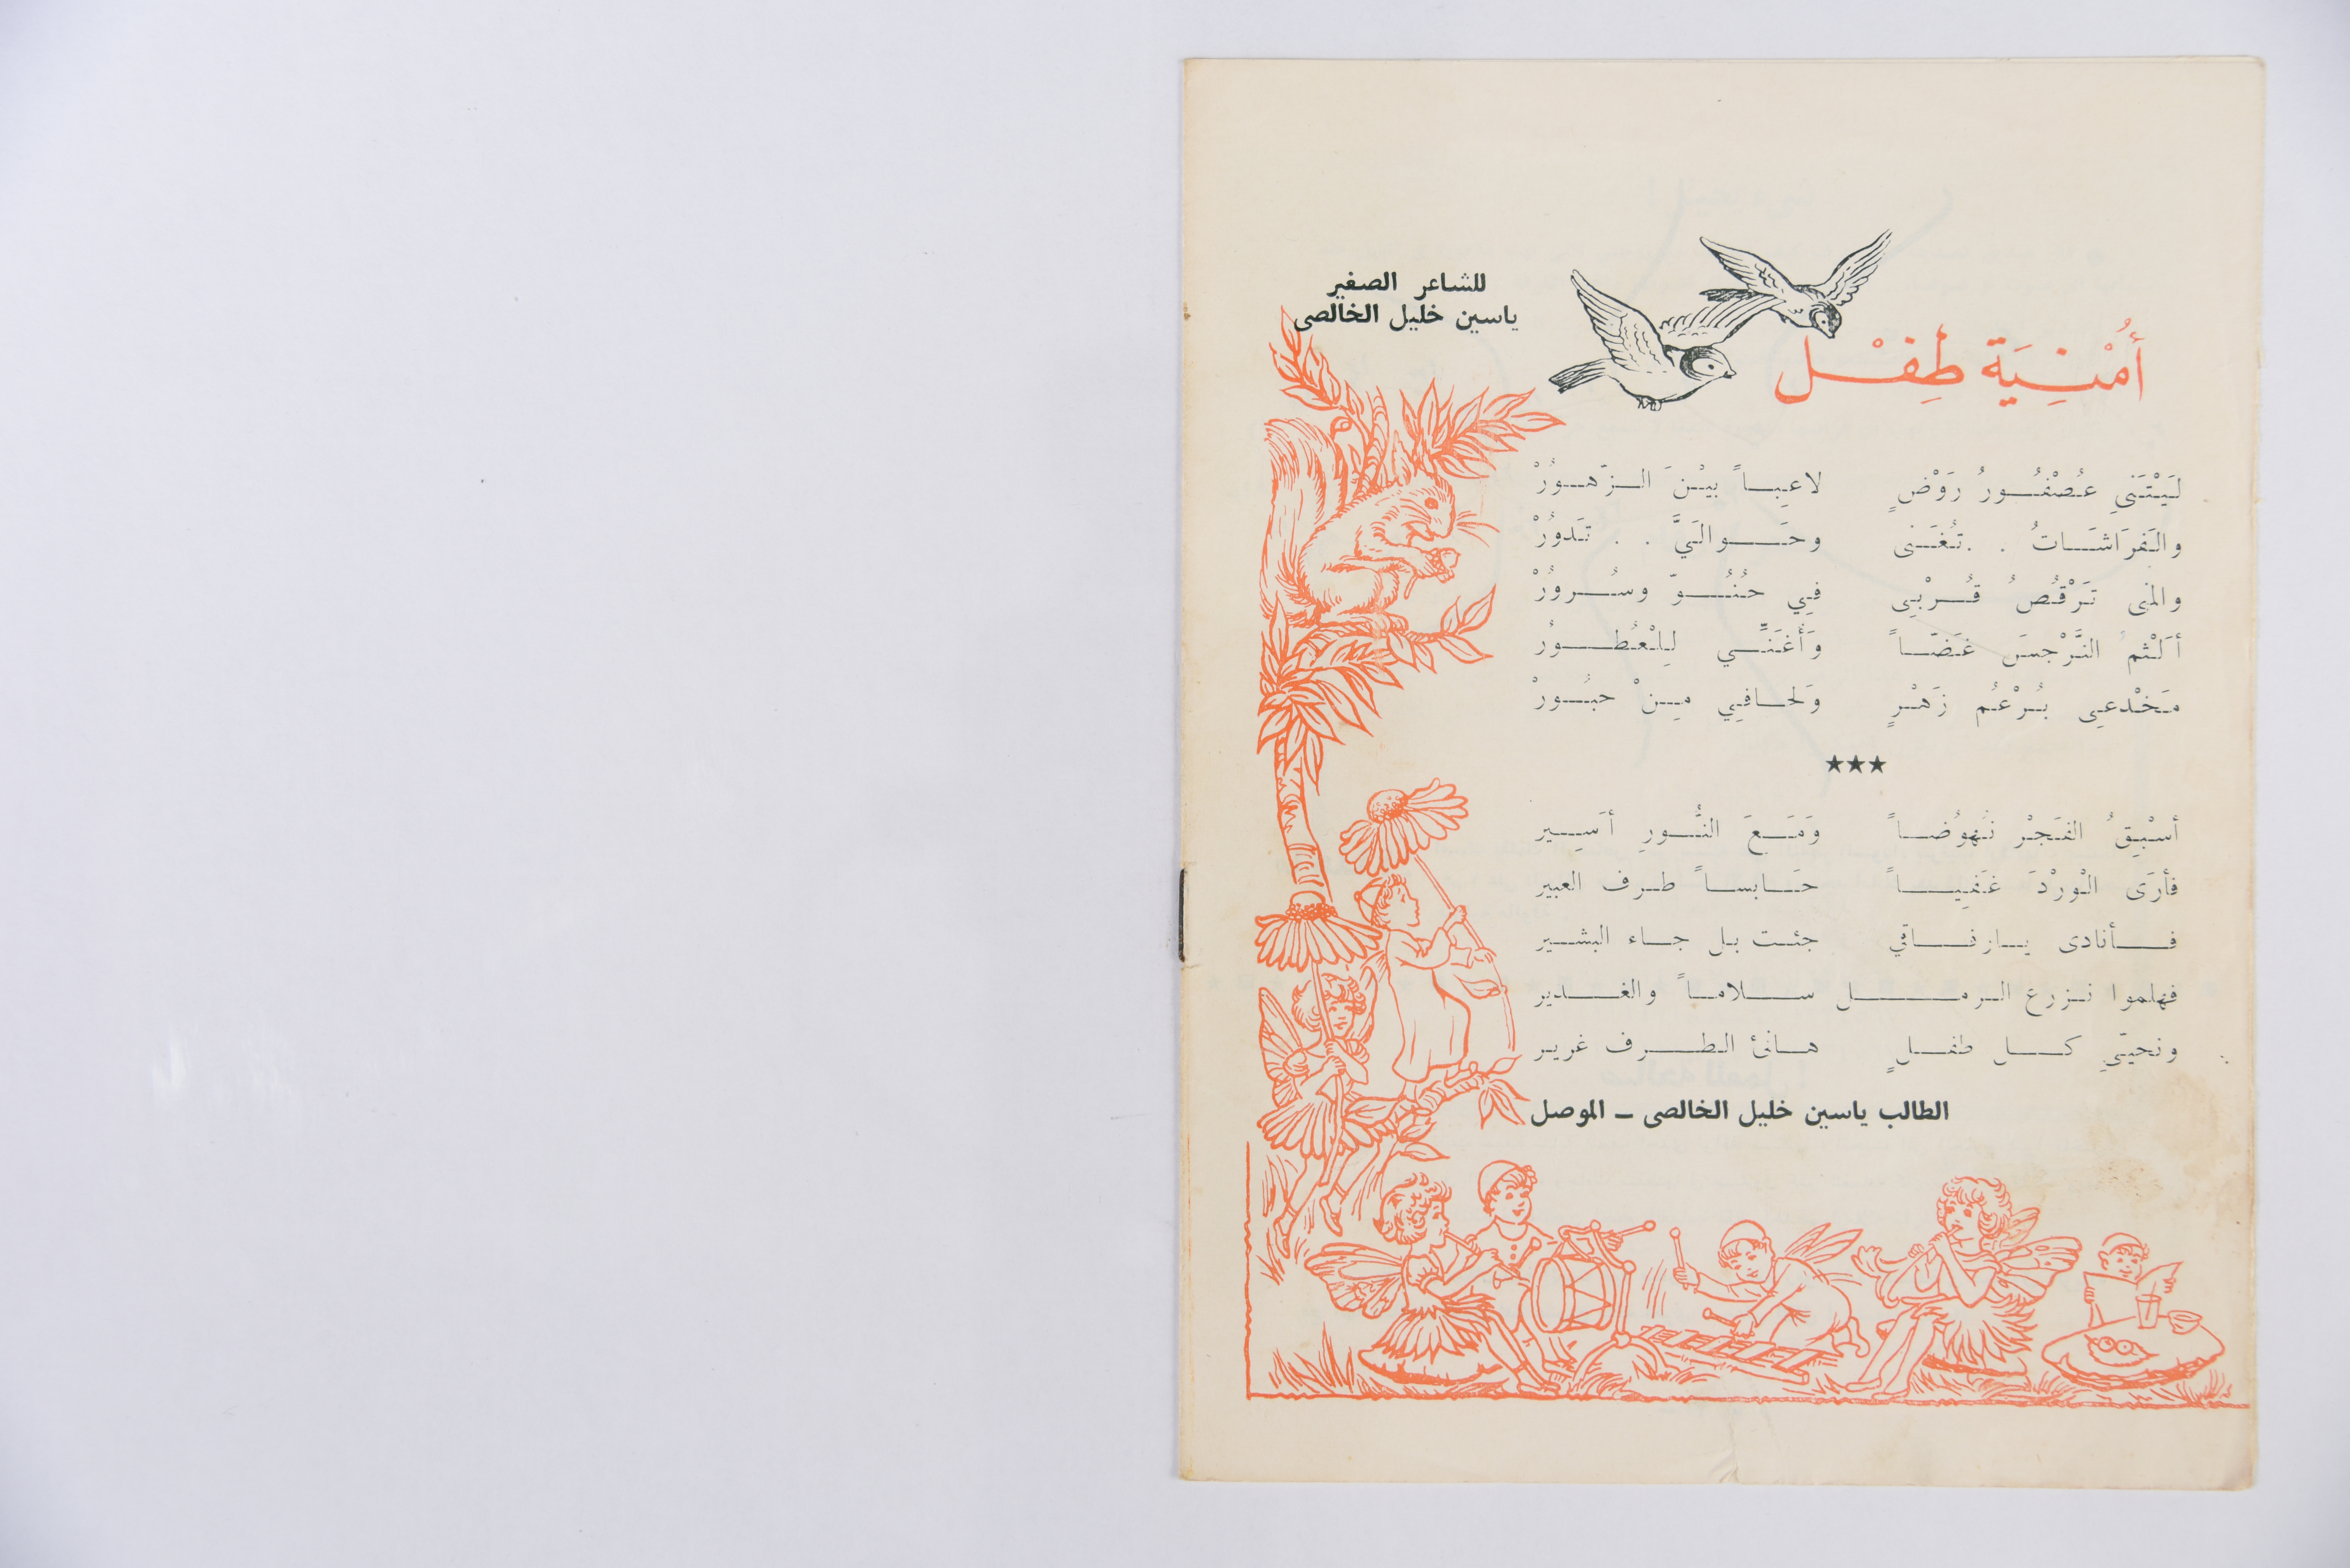 للشاعر الصغير
ياسين خليل الخالصى
أُمْنِيَة طِفْل
لَيْتَنى عُصْفُورُ رَوْضٍ لاعِباً بيْنَ الزّهورُْ
والفَرَاشَاتُ . . تُغَنى وحَوالَيَّ . . تَدورُْ
والمنى تَرْقُصُ قُرْبِى فِي حُنُوّ وسُرورُْ
أَلْثم النَّرْجسَ غَضّاً وَأُغَنِّي لِلْعُطورُ
مَخْدعِى بُرْعُم زَهْرٍ وَلحافِي مِنْ حبُورْ
★★★
أسْبِقُ الفَجْر نَهوُضاً وَمَعَ النُّورِ أَسِير
فأرَى الْورْدَ غَفِياً حَابساً طرف العبير
فأنادى يارفاقي جئت بل جاء البشير
فهلموا نزرع الرمل سلاماً والغدير
ونحيّي كل طفلٍ هانئ الطرف غرير
الطالب ياسين خليل الخالصى – الموصل